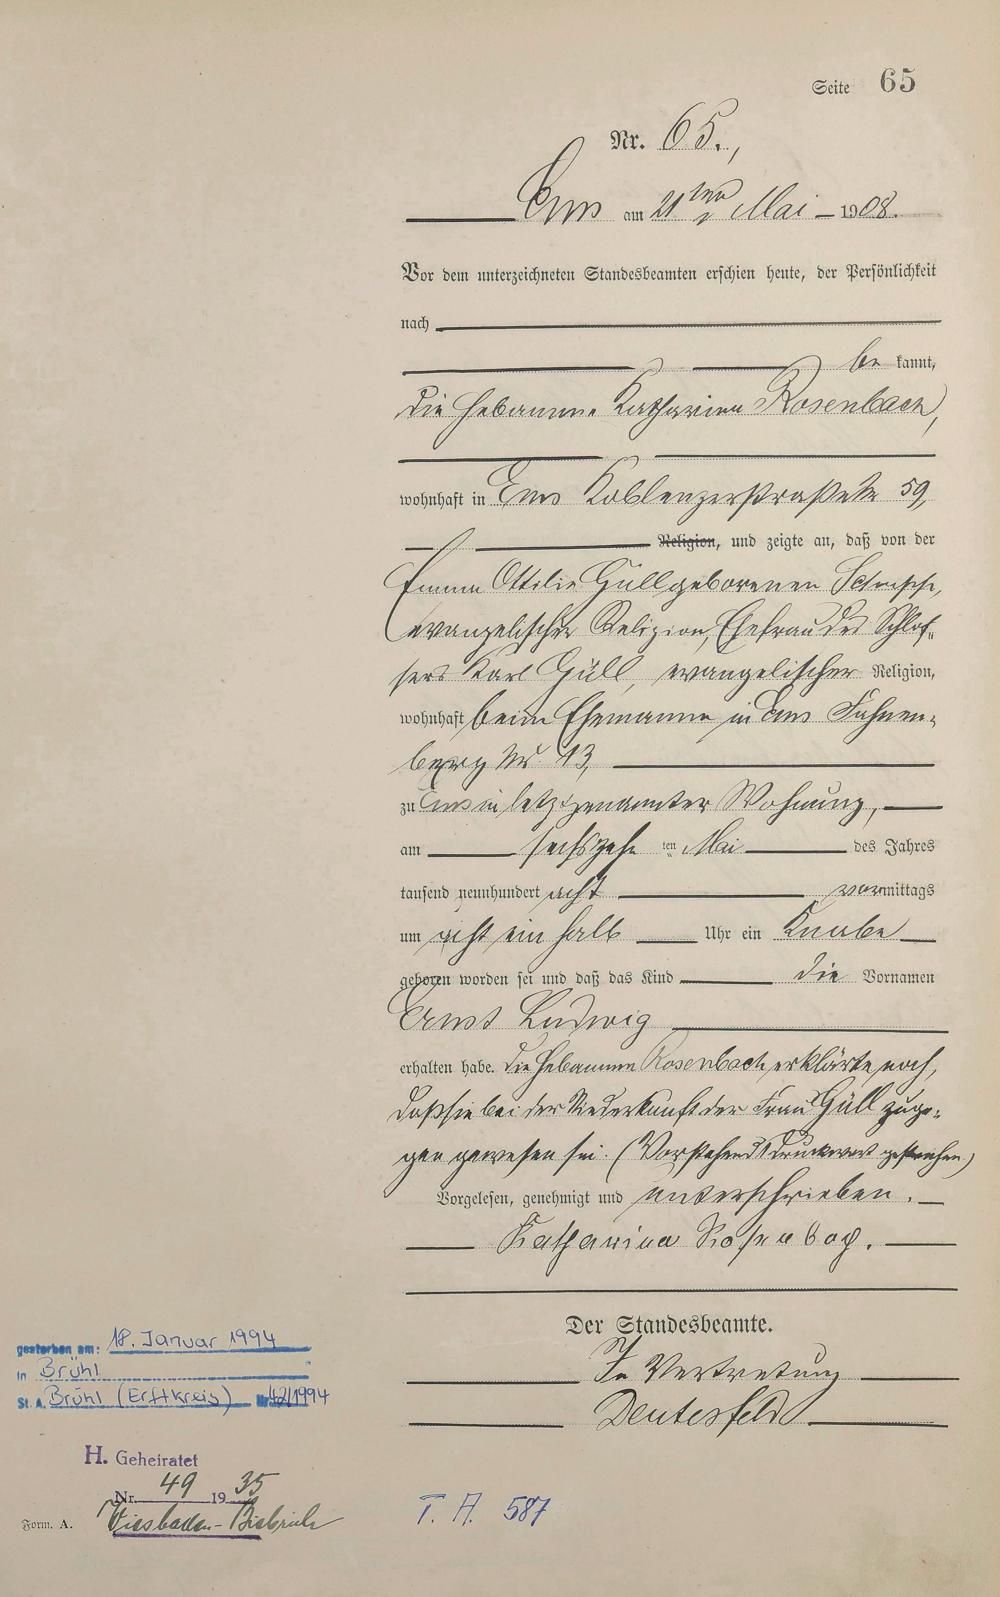 Seite 65
Nr. 65.,
Ems am 21ten Mai 1908.
Vor dem unterzeichneten Standesbeamten erschien heute, der Persönlichkeit
nach
be kannt,
die Hebamme Katharina Rosenbach,
wohnhaft in Ems Koblenzerstraße 59,
Religion, und zeigte an, daß von der
Emma Ottilie Güll geborenen
evangelischer Religion, Ehefrau des Schlos-
sers Karl Güll, evangelischer Religion,
wohnhaft beim Ehemanne in Ems Fahnen-
berg Nr. 13,
zu Ems in letztgenannter Wohnung,
am sechszehn ten Mai des Jahres
tausend neunhundert acht vormittags
um acht ein halb Uhr ein Knabe
geboren worden sei und daß das Kind die Vornamen
Ernst Ludwig
erhalten habe. Die Hebamme Rosenbach erklärte noch,
daß sie bei der Niederkunft der Frau Güll zuge-
gen gewesen sei. (Vorstehend 1 Druckwort gestrichen)
Vorgelesen, genehmigt und unterschrieben.
Katharina Rosenbach.
Der Standesbeamte.
In Vertretung
Deutesfeld
gestorben am: 18. Januar 1994
in Brühl
St. A. Brühl (Erftkreis) Nr. 42/1994
H. Geheiratet
Nr. 49 1935
Wiesbaden-Biebrich
Form. A.
T. A. 587